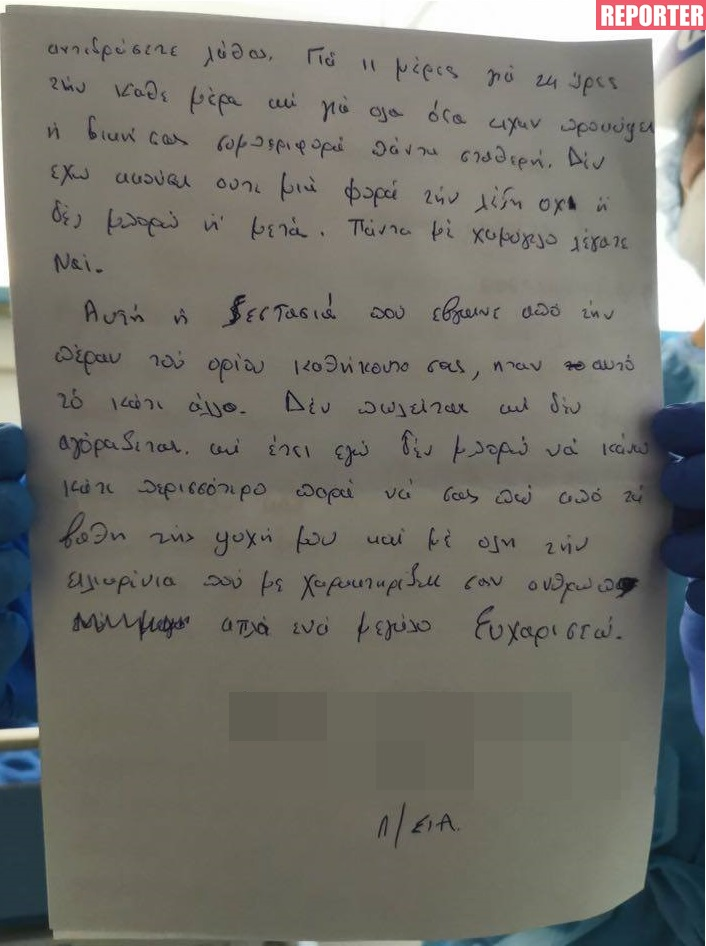 REPORTER
αντιδράσετε λάθος. Γιά 11 μέρες γιά 24 ώρες
την καθε μέρα και γιά ολα όσα ειχαν προκύψει
ή δικη σας συμπεριφορά πάντα σταθερή. Δέν
εχω ακούσει ουτε μιά φορά τήν λέξη οχι ή
δέν μπορώ ή μετά. Πάντα μέ χαμόγελο λέγατε
Ναί.
Αυτή ή ζεστασιά που εβγαινε από τήν
πέραν τού ορίου καθήκοντο σας, ηταν αυτό
τό κάτι άλλο. Δέν πωλείται και δέν
αγόραζεται. και έτσι εγώ δέν μπορώ νά κάνω
κάτι περισσότερο παρά νά σας πώ από τά
βαθη τής ψυχή μου καί μέ ολη τήν
ειλικρίνια πού με χαρακτηρίζει σαν ανθρωπο
απλά ενα μεγάλο Ευχαριστώ.